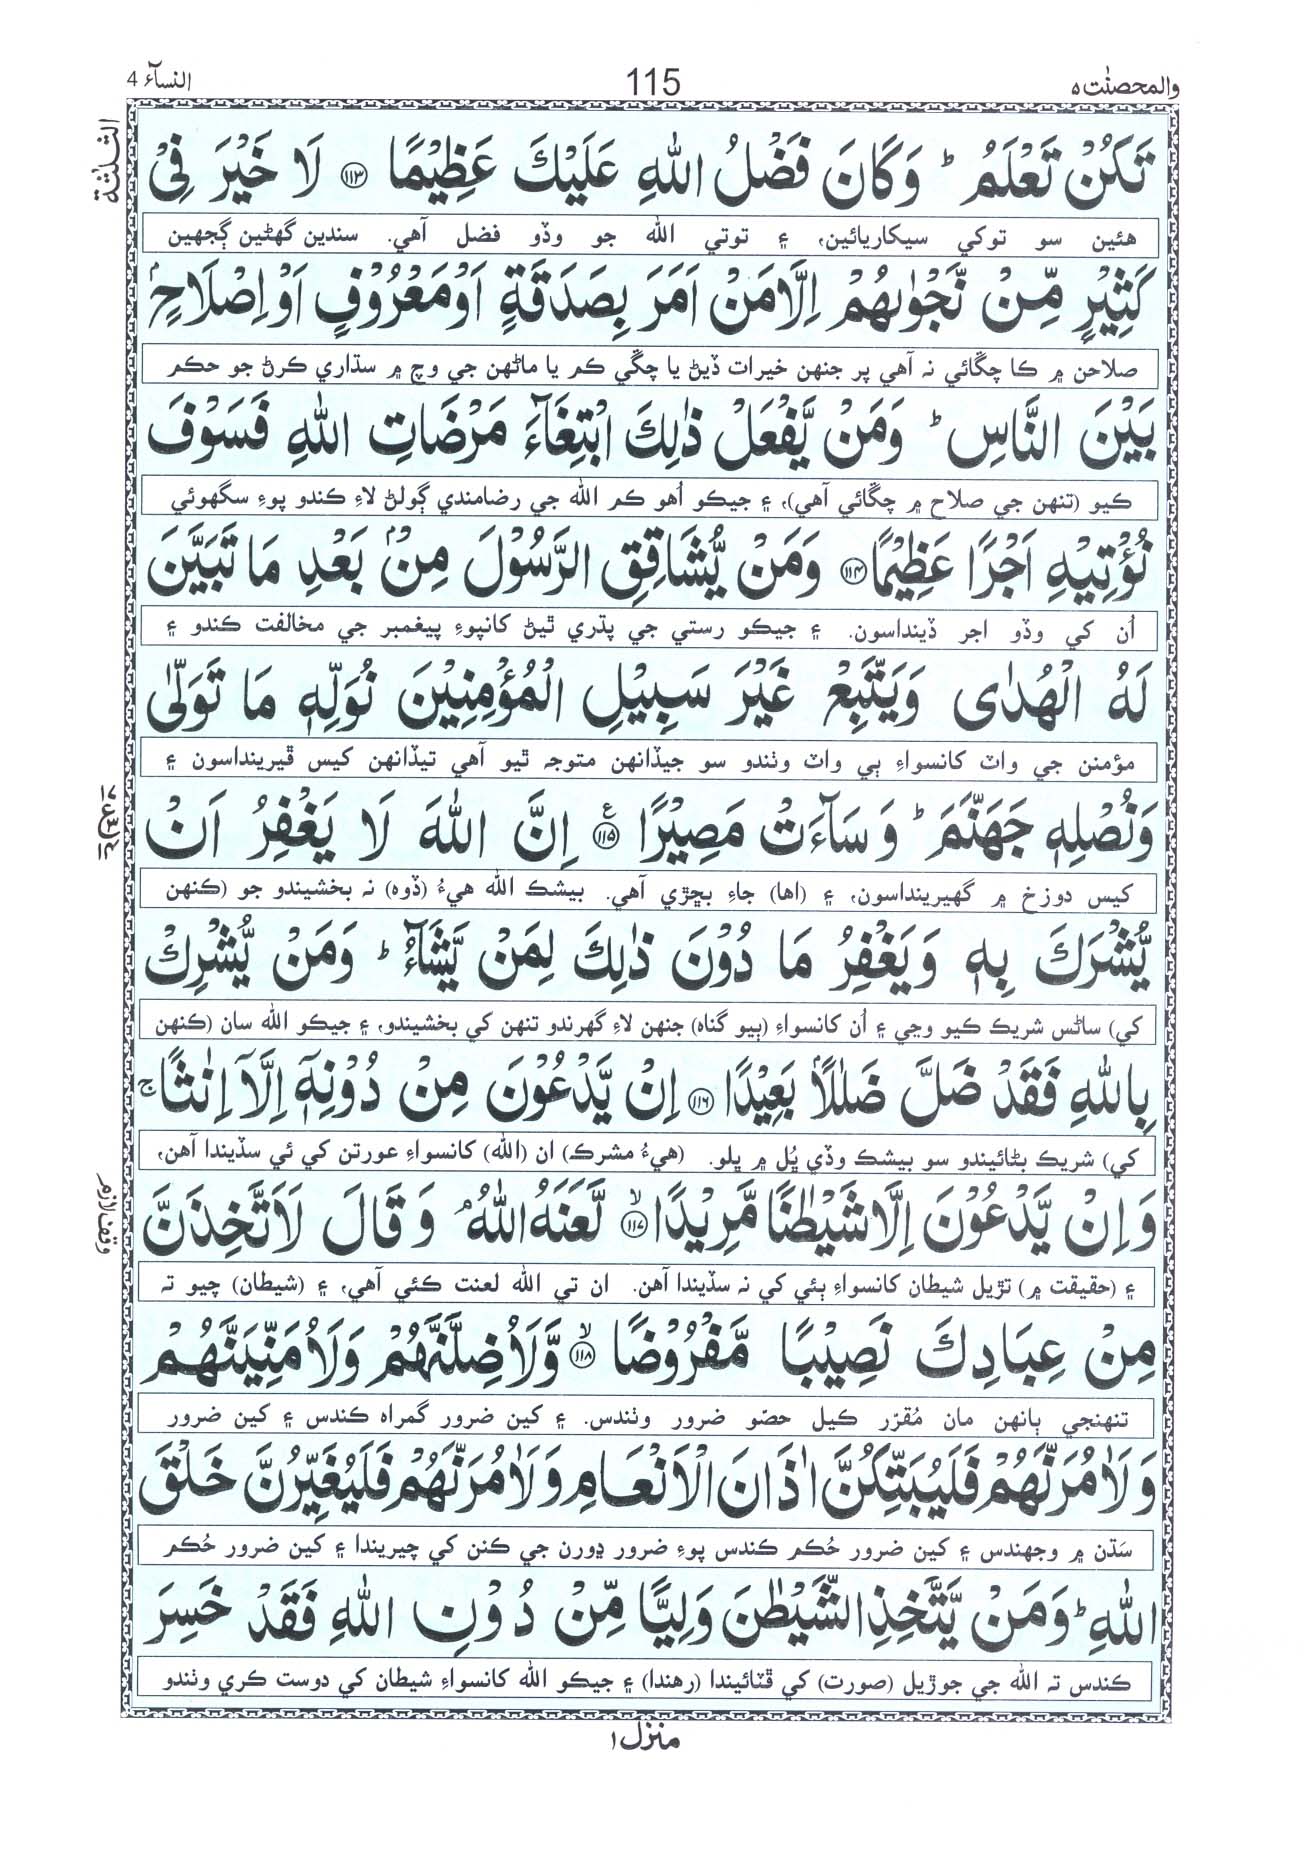 والمحصنٰت ٥
115
النسآء 4
تَكُنْ تَعْلَمُ ؕ وَكَانَ فَضْلُ اللّٰهِ عَلَيْكَ عَظِيْمًا ﴿۱۱۳﴾ لَا خَيْرَ فِىْ
الثلثة
هئين سو توکي سيکاريائين، ۽ توتي الله جو وڏو فضل آهي. سندين گھڻين ڳجھين
كَثِيْرٍ مِّنْ نَّجْوٰىهُمْ اِلَّا مَنْ اَمَرَ بِصَدَقَةٍ اَوْ مَعْرُوْفٍ اَوْ اِصْلَاحٍۭ
صلاحن ۾ ڪا چڱائي نہ آهي پر جنهن خيرات ڏيڻ يا چڱي ڪم يا ماڻهن جي وچ ۾ سڌاري ڪرڻ جو حڪم
بَيْنَ النَّاسِ ؕ وَمَنْ يَّفْعَلْ ذٰلِكَ ابْتِغَآءَ مَرْضَاتِ اللّٰهِ فَسَوْفَ
ڪيو (تنهن جي صلاح ۾ چڱائي آهي)، ۽ جيڪو اُهو ڪم الله جي رضامندي ڳولڻ لاءِ ڪندو پوءِ سگهوئي
نُؤْتِيْهِ اَجْرًا عَظِيْمًا ﴿۱۱۴﴾ وَمَنْ يُّشَاقِقِ الرَّسُوْلَ مِنْۢ بَعْدِ مَا تَبَيَّنَ
اُن کي وڏو اجر ڏينداسون. ۽ جيڪو رستي جي پڌري ٿيڻ کانپوءِ پيغمبر جي مخالفت ڪندو ۽
لَهُ الْهُدٰى وَيَتَّبِعْ غَيْرَ سَبِيْلِ الْمُؤْمِنِيْنَ نُوَلِّهٖ مَا تَوَلّٰى
مؤمنن جي واٽ کانسواءِ ٻي واٽ وٺندو سو جيڏانهن متوجہ ٿيو آهي تيڏانهن کيس ڦيرينداسون ۽
وَنُصْلِهٖ جَهَنَّمَ ؕ وَسَآءَتْ مَصِيْرًا ﴿۱۱۵﴾ ع اِنَّ اللّٰهَ لَا يَغْفِرُ اَنْ
کيس دوزخ ۾ گھيرينداسون، ۽ (اها) جاءِ بڇڙي آهي. بيشڪ الله هيءُ (ڏوہ) نہ بخشيندو جو (ڪنهن
يُّشْرَكَ بِهٖ وَيَغْفِرُ مَا دُوْنَ ذٰلِكَ لِمَنْ يَّشَآءُ ؕ وَمَنْ يُّشْرِكْ
کي) ساڻس شريڪ ڪيو وڃي ۽ اُن کانسواءِ (ٻيو گناه) جنهن لاءِ گھرندو تنهن کي بخشيندو، ۽ جيڪو الله سان (ڪنهن
بِاللّٰهِ فَقَدْ ضَلَّ ضَلٰلًاۢ بَعِيْدًا ﴿۱۱۶﴾ اِنْ يَّدْعُوْنَ مِنْ دُوْنِهٖۤ اِلَّاۤ اِنٰثًا ۚ
کي) شريڪ بڻائيندو سو بيشڪ وڏي ڀُل ۾ ڀلو. (هيءُ مشرڪ) ان (الله) کانسواءِ عورتن کي ئي سڏيندا آهن،
وَاِنْ يَّدْعُوْنَ اِلَّا شَيْطٰنًا مَّرِيْدًا ﴿۱۱۷﴾ لَّعَنَهُ اللّٰهُ ۘ وَقَالَ لَاَتَّخِذَنَّ
وقف لازم
۽ (حقيقت ۾) تڙيل شيطان کانسواءِ ٻئي کي نہ سڏيندا آهن. ان تي الله لعنت ڪئي آهي، ۽ (شيطان) چيو تہ
مِنْ عِبَادِكَ نَصِيْبًا مَّفْرُوْضًا ﴿۱۱۸﴾ وَّلَاُضِلَّنَّهُمْ وَلَاُمَنِّيَنَّهُمْ
تنهنجي ٻانهن مان مُقرّر ڪيل حصّو ضرور وٺندس. ۽ کين ضرور گمراہ ڪندس ۽ کين ضرور
وَلَاٰمُرَنَّهُمْ فَلَيُبَتِّكُنَّ اٰذَانَ الْاَنْعَامِ وَلَاٰمُرَنَّهُمْ فَلَيُغَيِّرُنَّ خَلْقَ
سَڌن ۾ وجھندس ۽ کين ضرور حُڪم ڪندس پوءِ ضرور ڍورن جي ڪنن کي چيريندا ۽ کين ضرور حُڪم
اللّٰهِ ؕ وَمَنْ يَّتَّخِذِ الشَّيْطٰنَ وَلِيًّا مِّنْ دُوْنِ اللّٰهِ فَقَدْ خَسِرَ
ڪندس تہ الله جي جوڙيل (صورت) کي ڦٽائيندا (رهندا) ۽ جيڪو الله کانسواءِ شيطان کي دوست ڪري وٺندو
منزل ۱